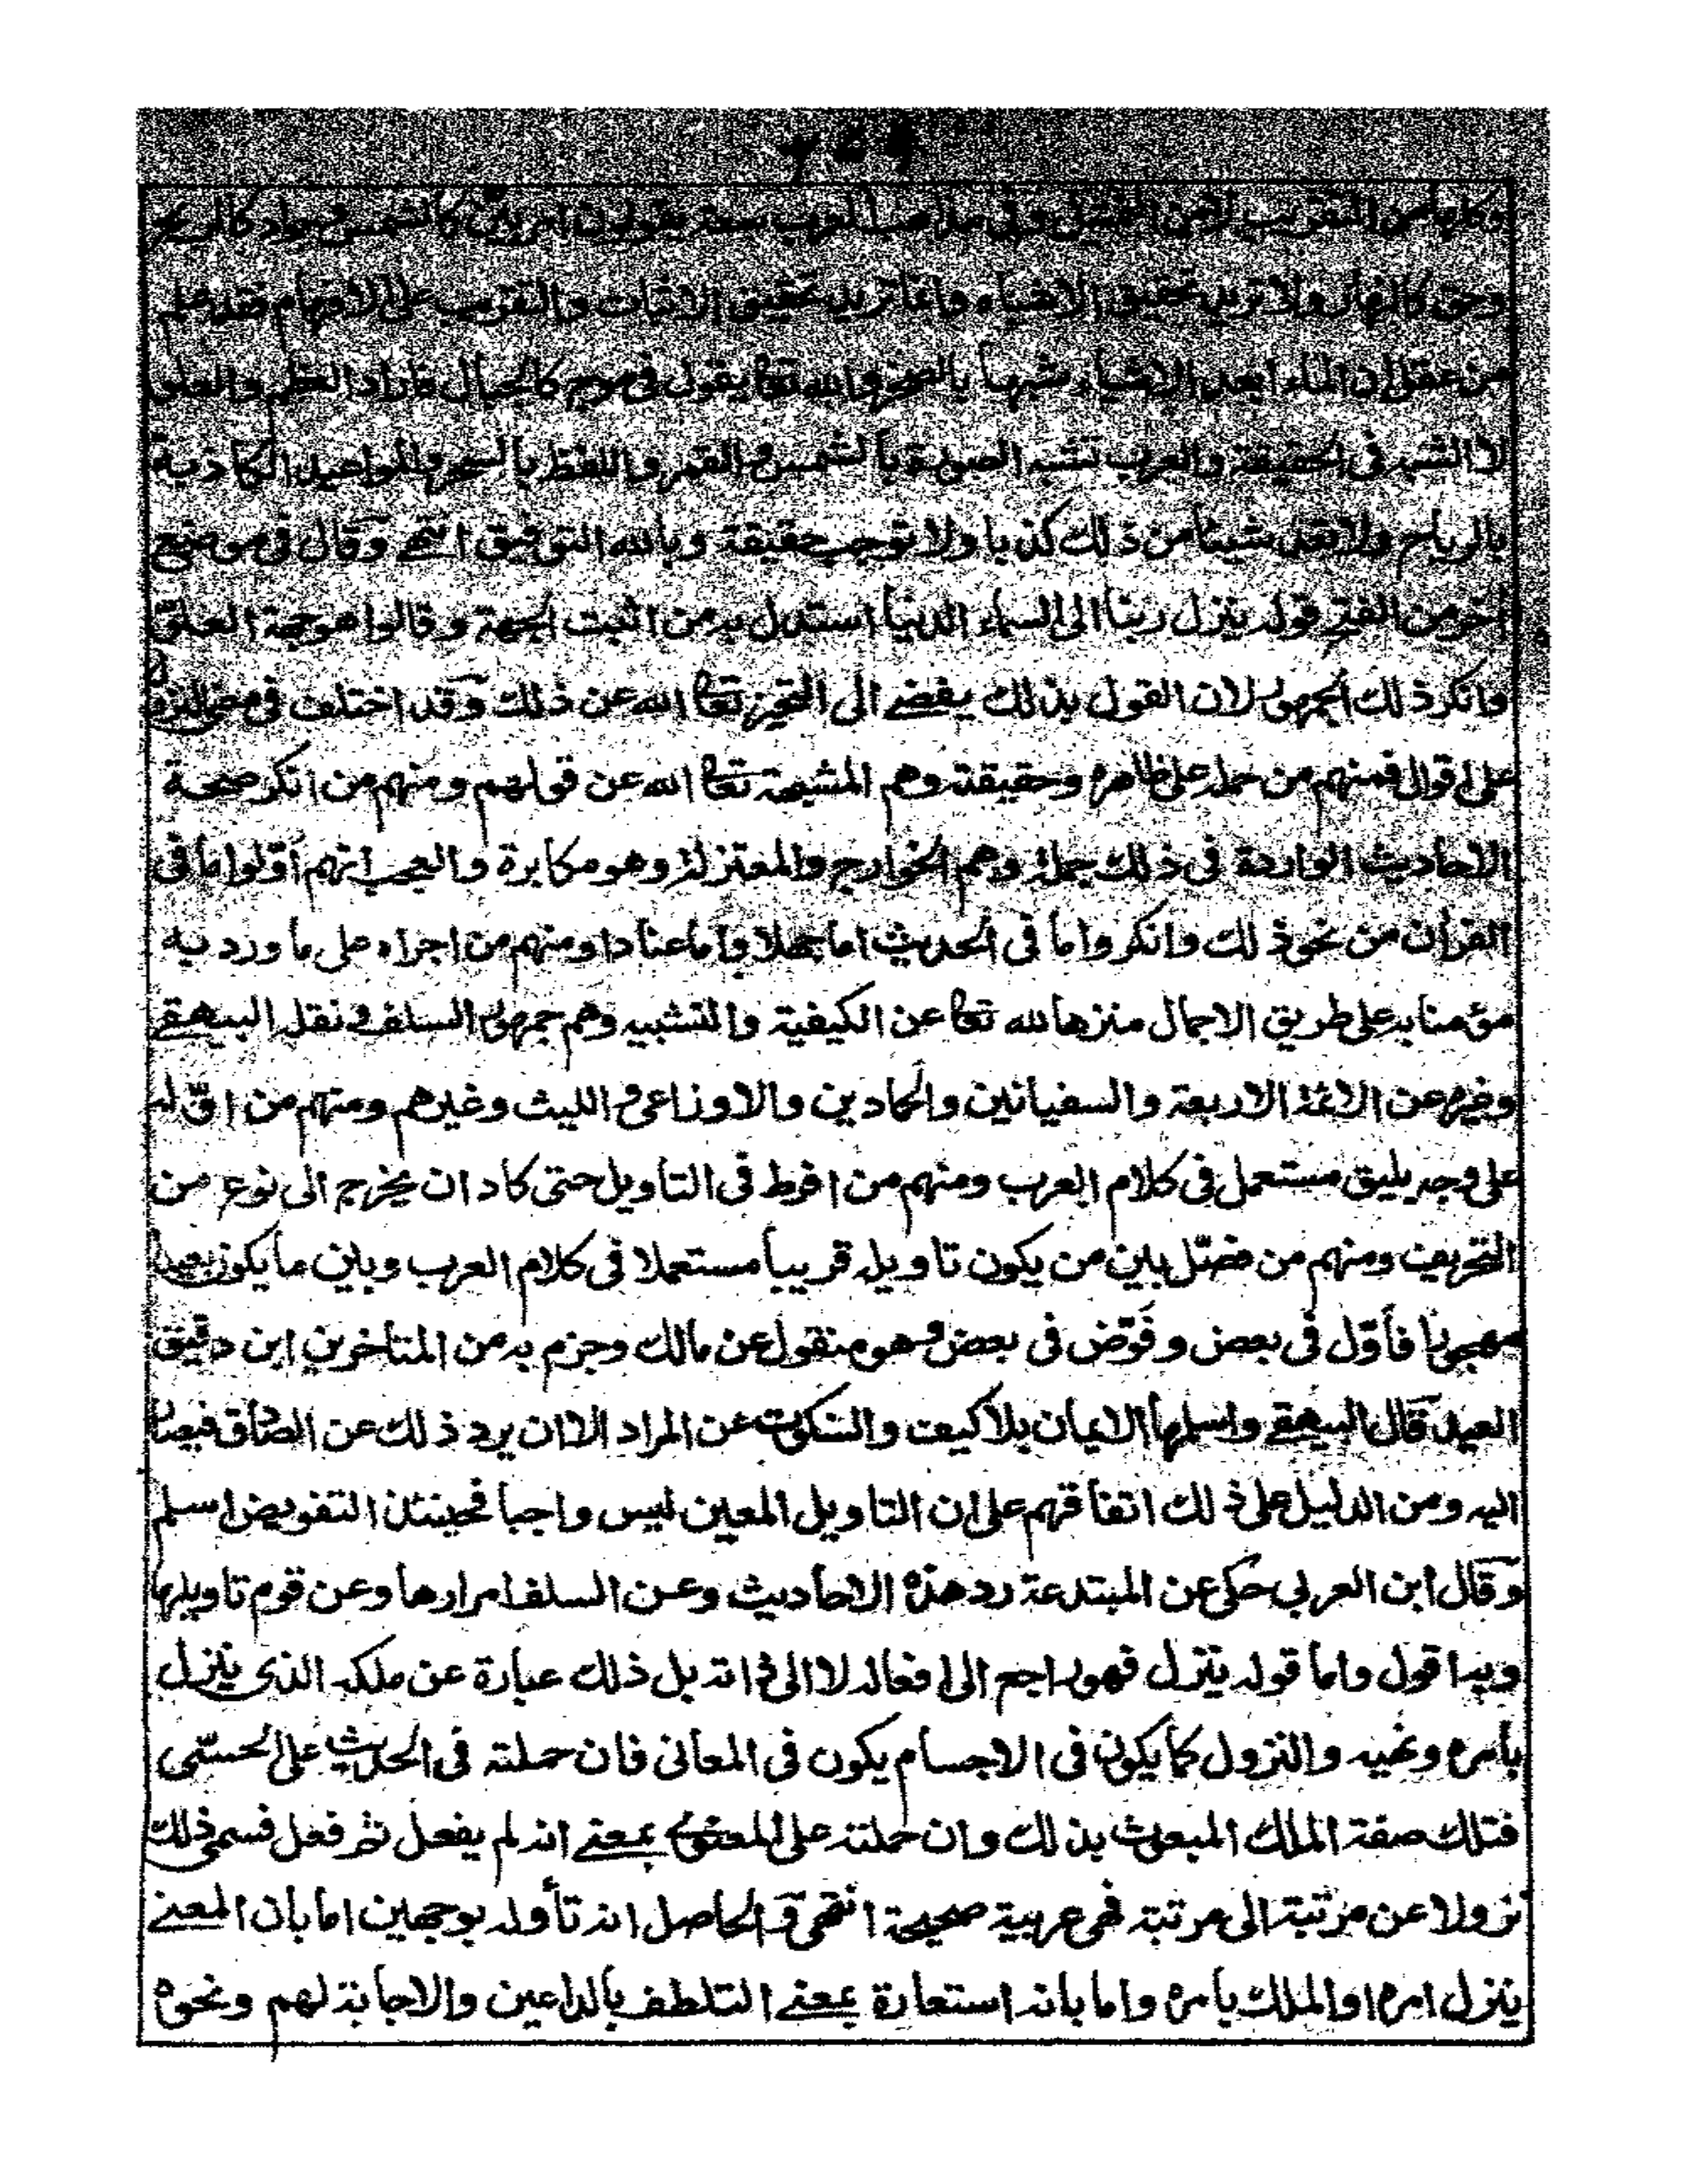 وكلها من التقريب لا من التحقيق وفي مذاهب العرب سعة يقولون امر بيّن كالشمس وجواد كالريح
وحق كالنهار ولا تريد تحقيق الاشياء وانما تريد تحقيق الاثبات والتقريب على الافهام فقد علم
من عقل ان الماء ابعد الاشياء شبها بالصخر والله تعا يقول في موج كالجبال فاراد العظم والعلو
لا الشبه في الحقيقة والعرب تشبه الصورة بالشمس والقمر واللفظ بالسحر والمواعيد الكاذبة
بالرياح ولا تعد شيئا من ذلك كذبا ولا توجب حقيقة وبالله التوفيق انتهى وقال في موضع
اخر من الفتح قوله ينزل ربنا الى السماء الدنيا استدل به من اثبت الجهة وقالوا هو جهة العلو
وانكر ذلك الجمهور لان القول بذلك يفضي الى التحيز تعا الله عن ذلك وقد اختلف في معنى النزول
على اقوال فمنهم من حمله على ظاهره وحقيقته وهم المشبهة تعا الله عن قولهم ومنهم من انكر صحة
الاحاديث الواردة في ذلك جملة وهم الخوارج والمعتزلة وهو مكابرة والعجب انهم أوّلوا ما في
القرأن من نحو ذلك وانكروا ما في الحديث اما جهلا واما عنادا ومنهم من اجراه على ما ورد به
مؤمنا به على طريق الاجمال منزها لله تعا عن الكيفية والتشبيه وهم جمهور السلف ونقله البيهقي
وغيره عن الائمة الاربعة والسفيانين والحمادين والاوزاعي والليث وغيرهم ومنهم من اوّله
على وجه يليق مستعمل في كلام العرب ومنهم من افرط في التاويل حتى كاد ان يخرج الى نوع من
التحريف ومنهم من فصّل بين من يكون تاويله قريباً مستعملا في كلام العرب وبين ما يكون بعيدا
مهجورا فأوّل في بعض وفوّض في بعض وهو منقول عن مالك وجزم به من المتاخرين ابن دقيق
العيد قال البيهقي واسلمها الايمان بلا كيف والسكوت عن المراد الا ان يرد ذلك عن الصادق فيصار
اليه ومن الدليل على ذلك اتفاقهم على ان التاويل المعين ليس واجبا فحينئذ التفويض اسلم
وقال ابن العربي حكي عن المبتدعة رد هذه الاحاديث وعن السلف امرارها وعن قوم تاويلها
وبه اقول واما قوله ينزل فهو راجع الى افعاله لا الى ذاته بل ذلك عبارة عن ملكه الذي ينزل
بامره ونهيه والنزول كما يكون في الاجسام يكون في المعاني فان حملته في الحديث على الحسّي
فتلك صفة الملك المبعوث بذلك وان حملته على المعنوي بمعنى انه لم يفعل ثم فعل فسمى ذلك
نزولا عن مرتبة الى مرتبة فهي عربية صحيحة انتهى والحاصل انه تأوله بوجهين اما بان المعنى
ينزل امره او الملك بامره واما بانه استعارة بمعنى التلطف بالداعين والاجابة لهم ونحوه